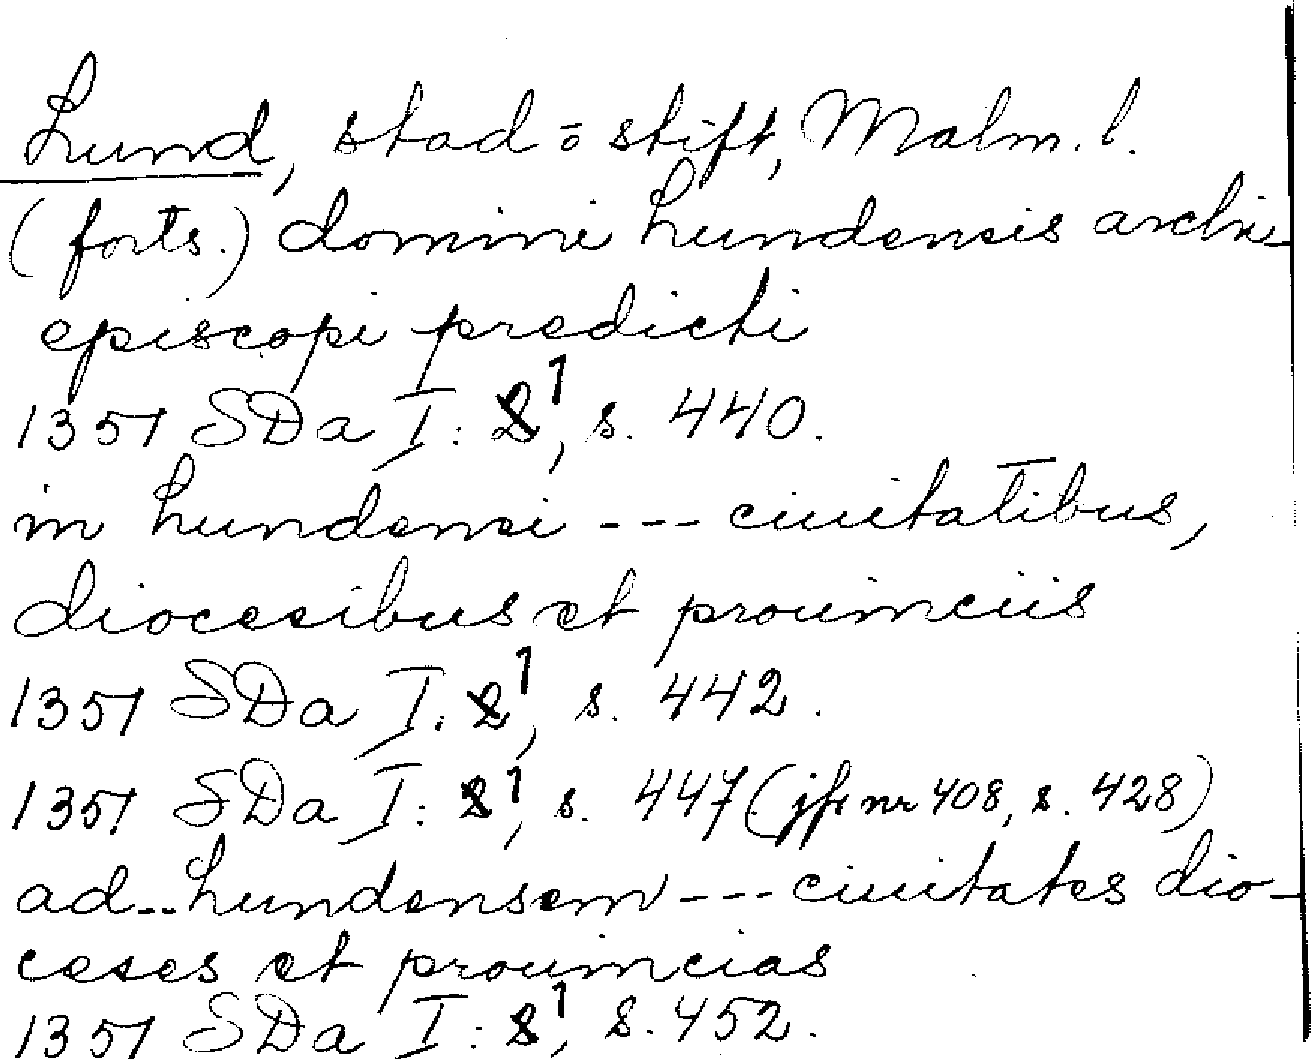 Lund, stad o stift, Malm. l.
(forts.) domini Lundensis archi-
episcopi predicti
1351 SDa I: 1, s. 440.
in Lundensi --- ciuitatibus,
diocesibus et prouinciis
1351 SDa I: 1, s. 442.
1351 SDa I: 1, s. 447 (jfr nr 408, s. 428)
ad .. Lundensem --- ciuitates dio-
ceses et prouincias
1351 SDa I: 1, s. 452.